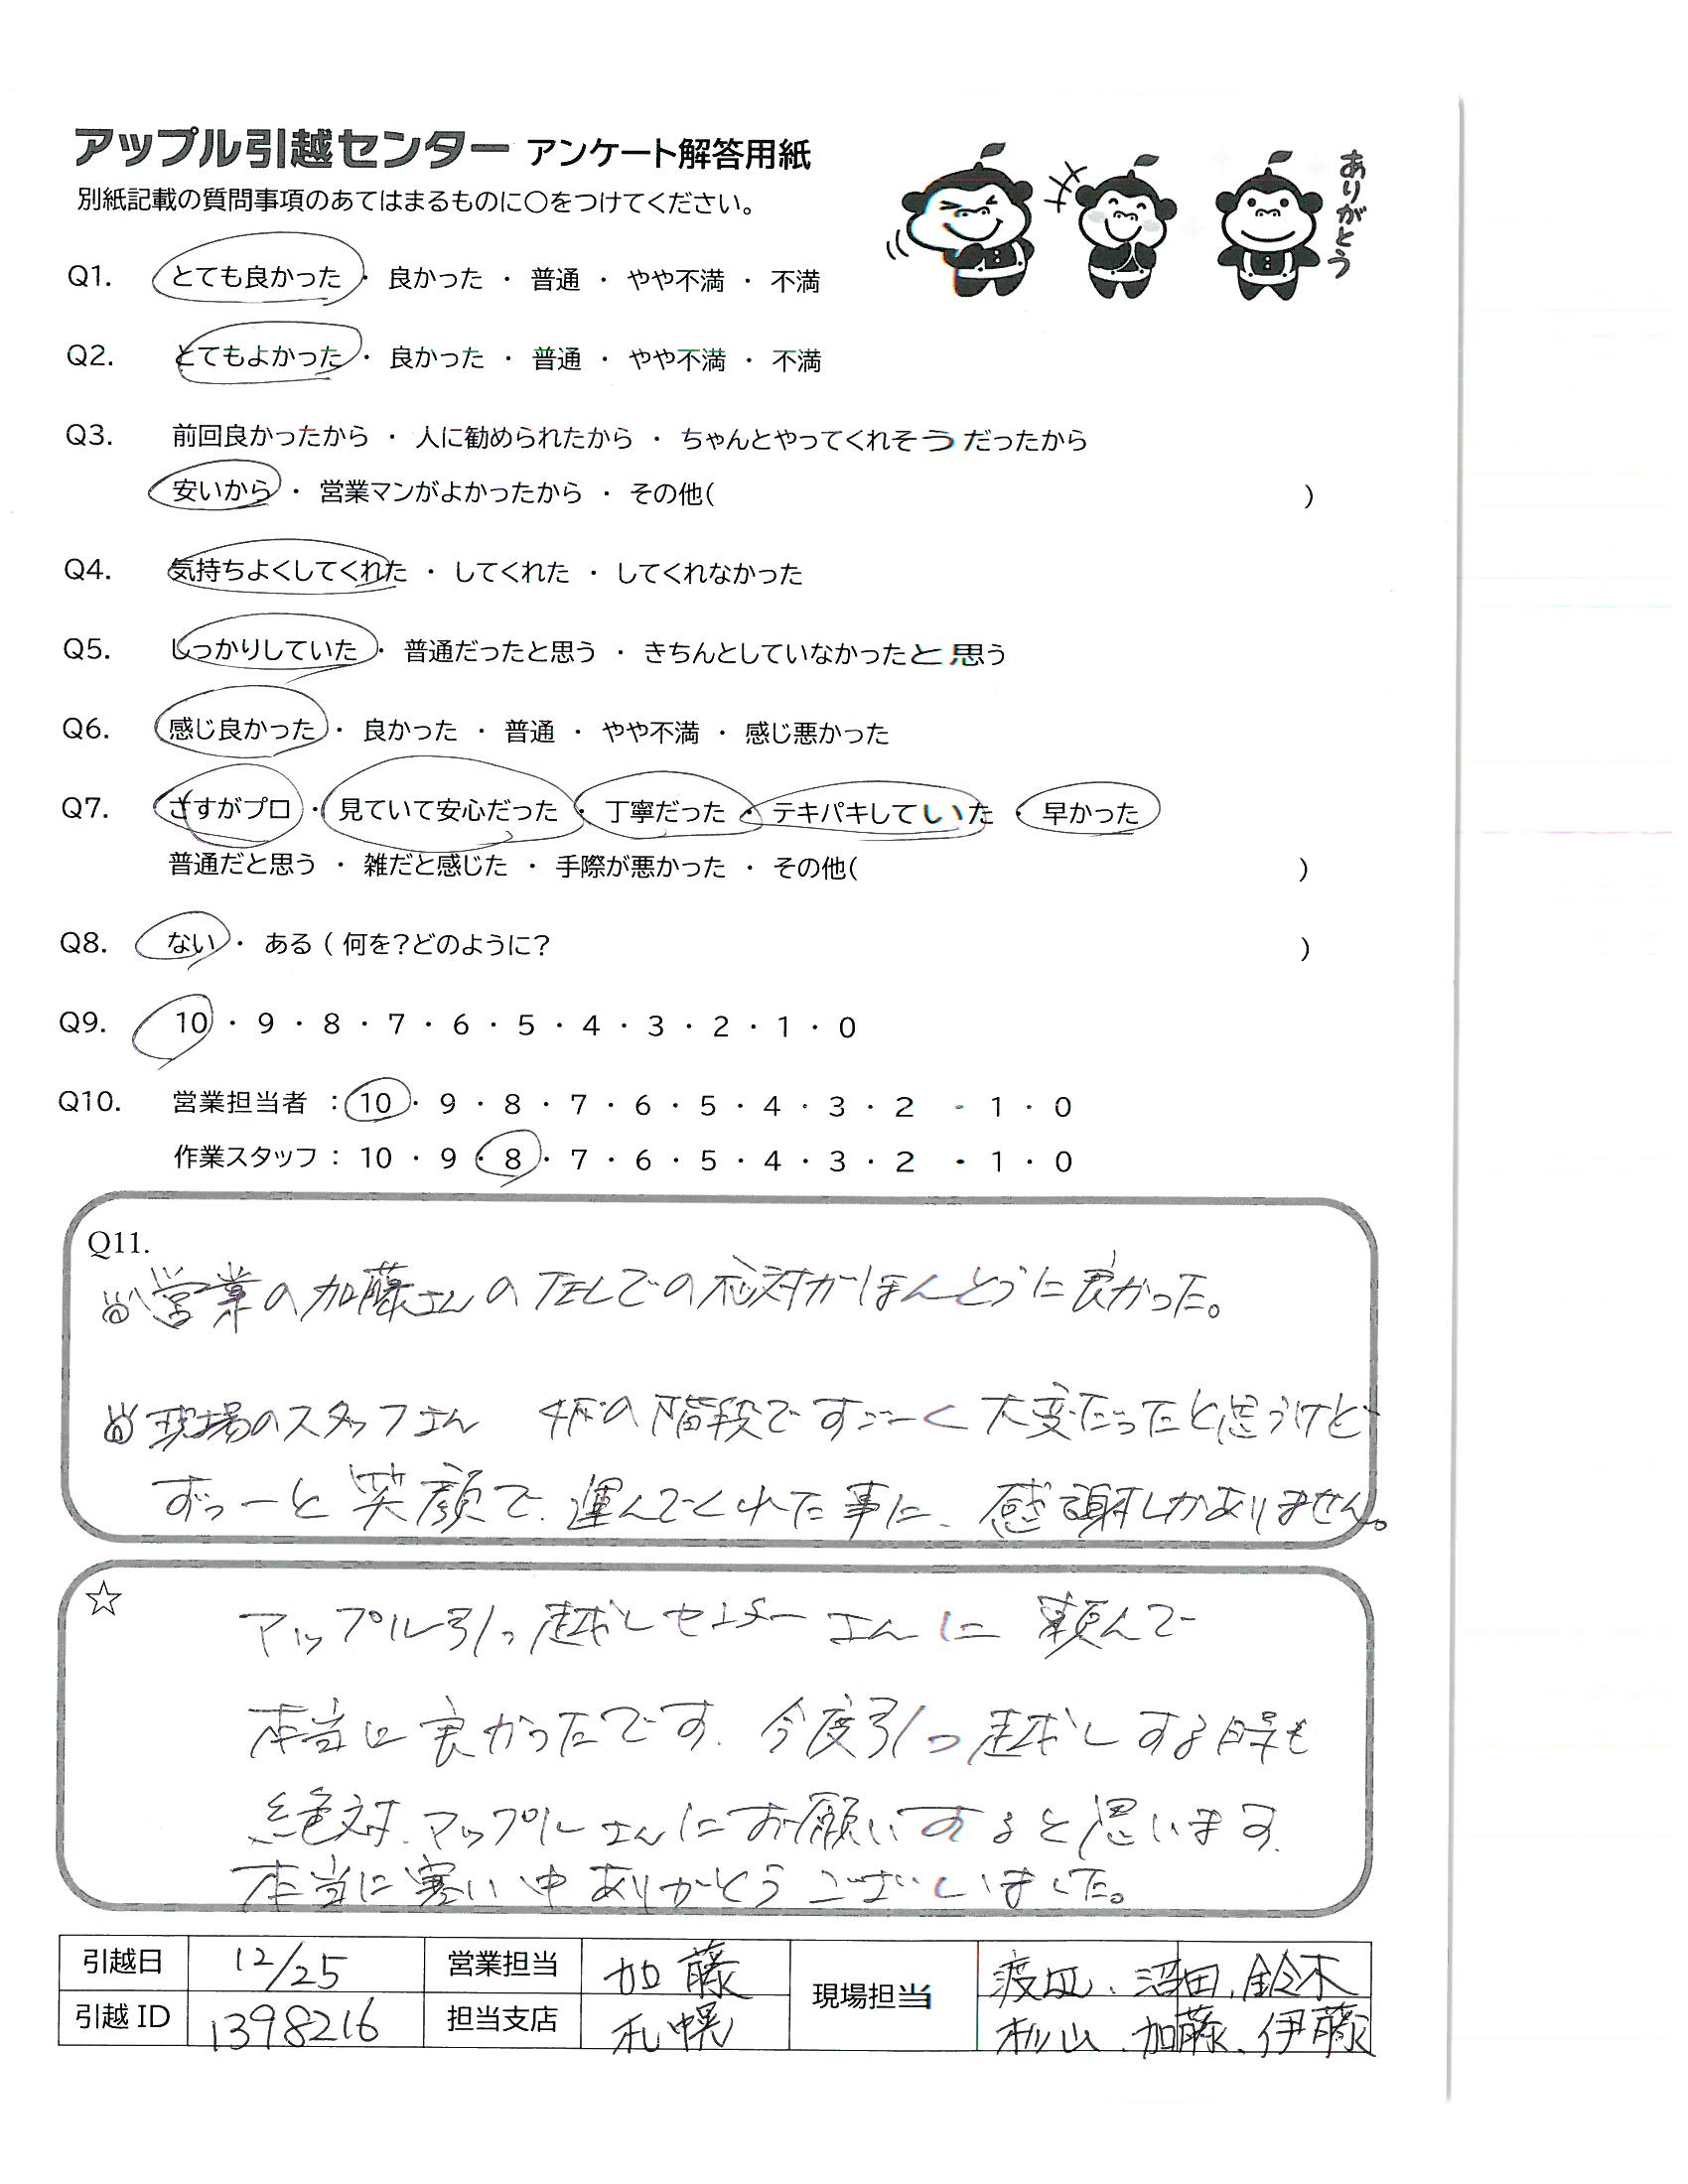 アップル引越センター アンケート解答用紙
ありがとう
別紙記載の質問事項のあてはまるものに○をつけてください。
Q1. とても良かった ・ 良かった ・ 普通 ・ やや不満 ・ 不満
Q2. とてもよかった ・ 良かった ・ 普通 ・ やや不満 ・ 不満
Q3. 前回良かったから ・ 人に勧められたから ・ ちゃんとやってくれそうだったから
安いから ・ 営業マンがよかったから ・ その他( )
Q4. 気持ちよくしてくれた ・ してくれた ・ してくれなかった
Q5. しっかりしていた ・ 普通だったと思う ・ きちんとしていなかったと思う
Q6. 感じ良かった ・ 良かった ・ 普通 ・ やや不満 ・ 感じ悪かった
Q7. さすがプロ ・ 見ていて安心だった ・ 丁寧だった ・ テキパキしていた ・ 早かった
普通だと思う ・ 雑だと感じた ・ 手際が悪かった ・ その他( )
Q8. ない ・ ある ( 何を?どのように? )
Q9. 10 ・ 9 ・ 8 ・ 7 ・ 6 ・ 5 ・ 4 ・ 3 ・ 2 ・ 1 ・ 0
Q10. 営業担当者 : 10 ・ 9 ・ 8 ・ 7 ・ 6 ・ 5 ・ 4 ・ 3 ・ 2 ・ 1 ・ 0
作業スタッフ : 10 ・ 9 ・ 8 ・ 7 ・ 6 ・ 5 ・ 4 ・ 3 ・ 2 ・ 1 ・ 0
Q11.
営業の加藤さんのTELでの応対がほんとうに良かった。
現場のスタッフさん 4Fの階段ですごーく大変だったと思うけど
ずっーと笑顔で、運んでくれた事に、感謝しかありません。
☆ アップル引っ越しセンターさんに 頼んで
本当に良かったです。今度引っ越しする時も
絶対、アップルさんにお願いすると思います。
本当に寒い中ありがとうございました。
引越日 12/25 営業担当 加藤 現場担当 渡辺、沼田、鈴木
引越ID 1398216 担当支店 札幌 杉山、加藤、伊藤